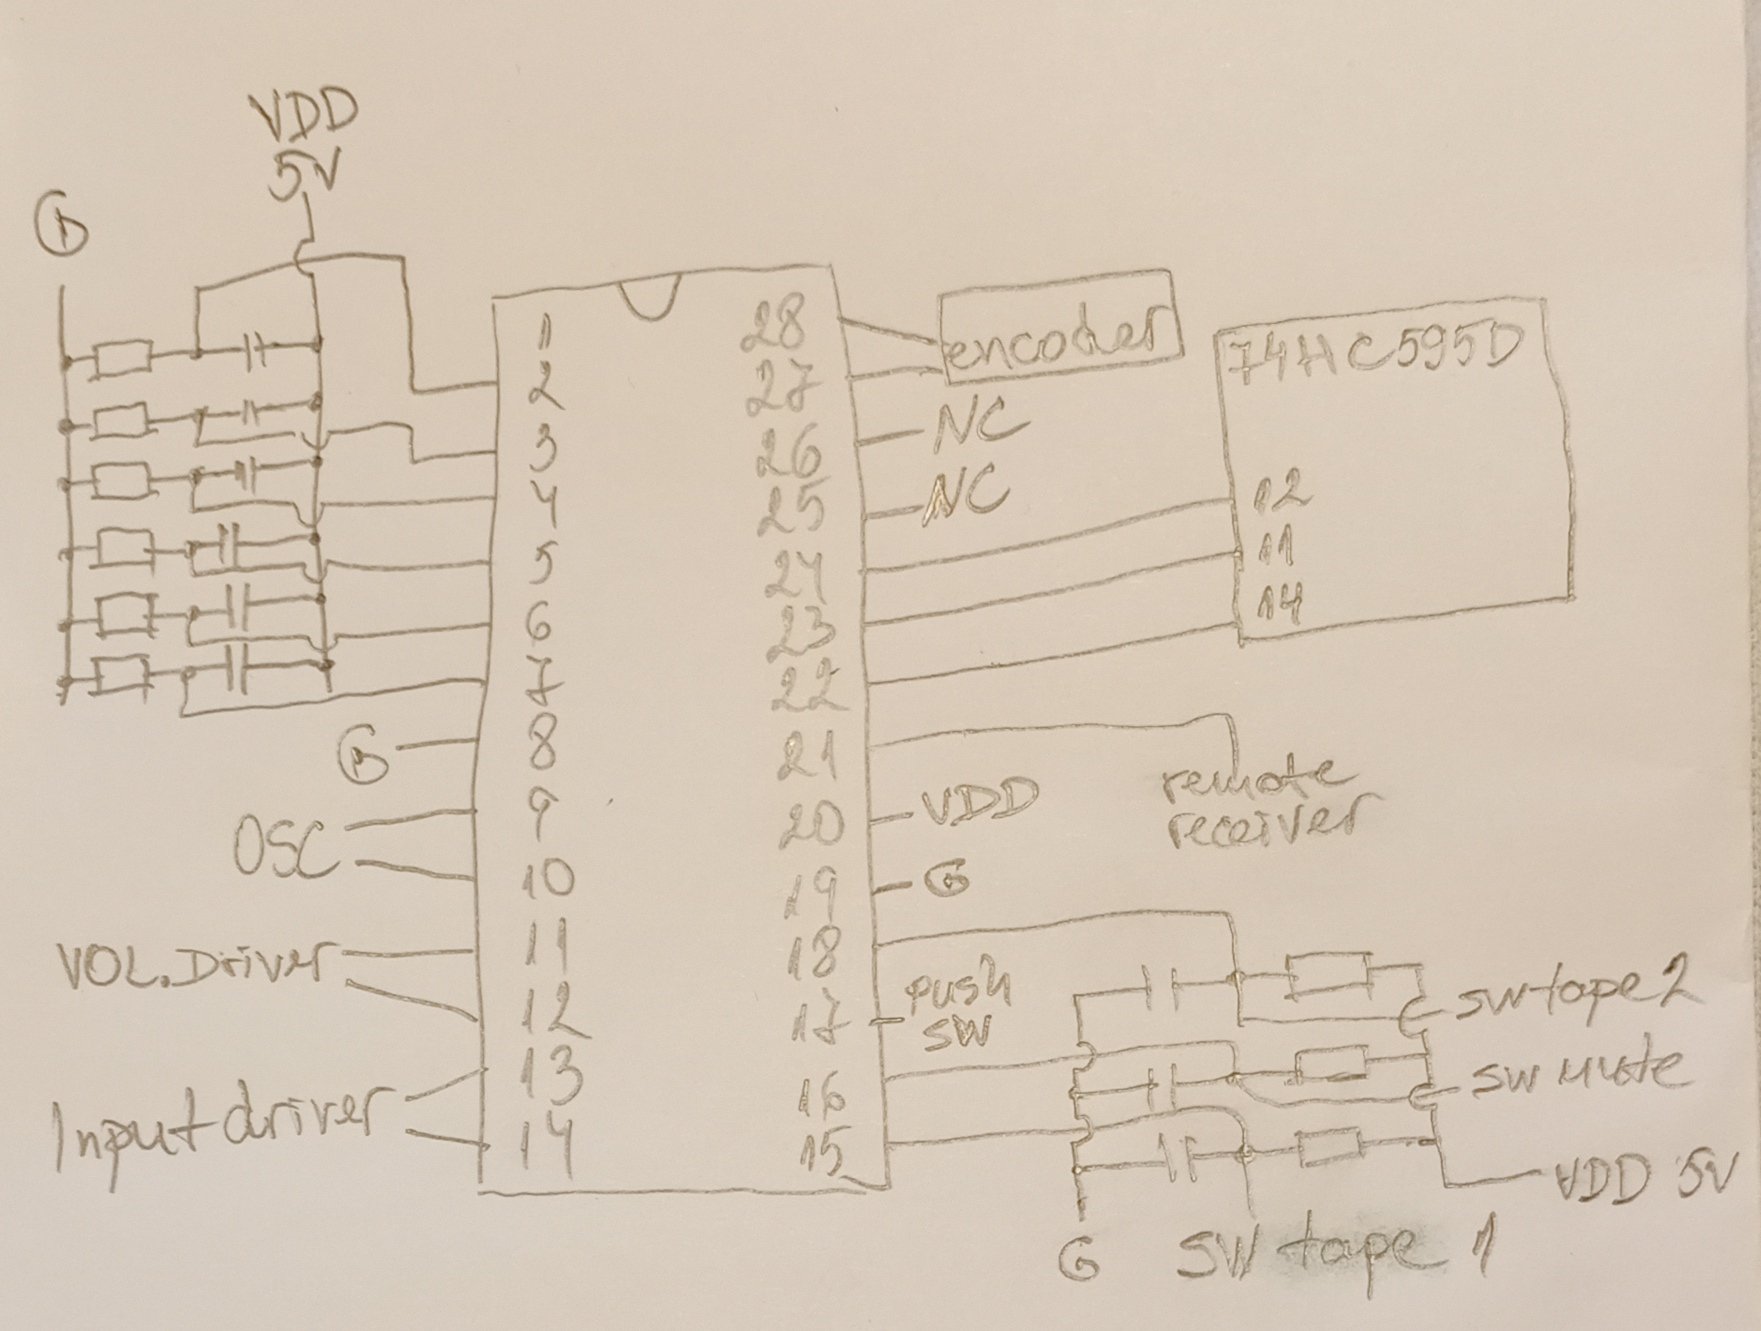 VDD
5V
G
1
2
3
4
5
6
7
8
9
10
11
12
13
14
28
27
26
25
24
23
22
21
20
19
18
17
16
15
G
OSC
VOL. Driver
Input driver
encoder
NC
NC
74HC595D
12
11
14
remote
receiver
VDD
G
push
SW
SW tape 2
SW mute
VDD 5V
G
SW tape 1